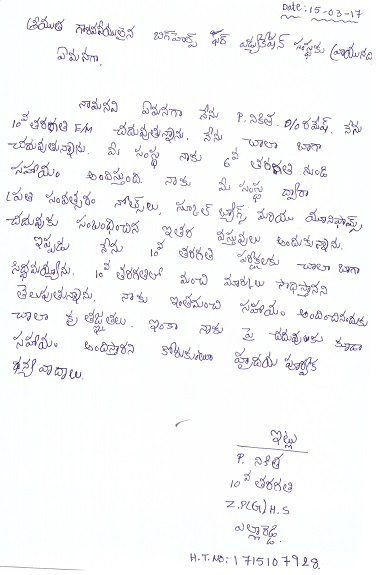 Date: 15-03-17
శ్రీయుత గౌరవనీయులైన బిగ్‌హెల్ప్ ఫర్ ఎడ్యుకేషన్ సంస్థకు వ్రాయునది
ఏమనగా.
నామనవి ఏమనగా నేను P. నికిత. D/o రమేష్. నేను
10వ తరగతి E/M చదువుతున్నాను. నేను చాలా బాగా
చదువుతున్నాను. మీ సంస్థ నాకు 6వ తరగతి నుండి
సహాయం అందిస్తుంది. నాకు మీ సంస్థ ద్వారా
ప్రతి సంవత్సరం నోట్స్‌లు, స్కూల్ బ్యాగ్స్ మరియు యూనిఫామ్స్
చదువుకు సంబంధించిన ఇతర వస్తువులు అందుకున్నాను.
ఇప్పుడు నేను 10వ తరగతి పరీక్షలకు చాలా బాగా
సిద్ధమయ్యాను. 10వ తరగతిలో మంచి మార్కులు సాధిస్తానని
తెలుపుతున్నాను. నాకు ఇంతమంచి సహాయం అందించినందుకు
చాలా కృతజ్ఞతలు. ఇంకా నాకు పై చదువులకు కూడా
సహాయం అందిస్తారని కోరుకుంటూ హృదయ పూర్వక
ధన్యవాదాలు.
ఇట్లు
P. నికిత
10వ తరగతి
Z.P(G)H.S
ఎల్లారెడ్డి.
H.T.NO: 1715107928.